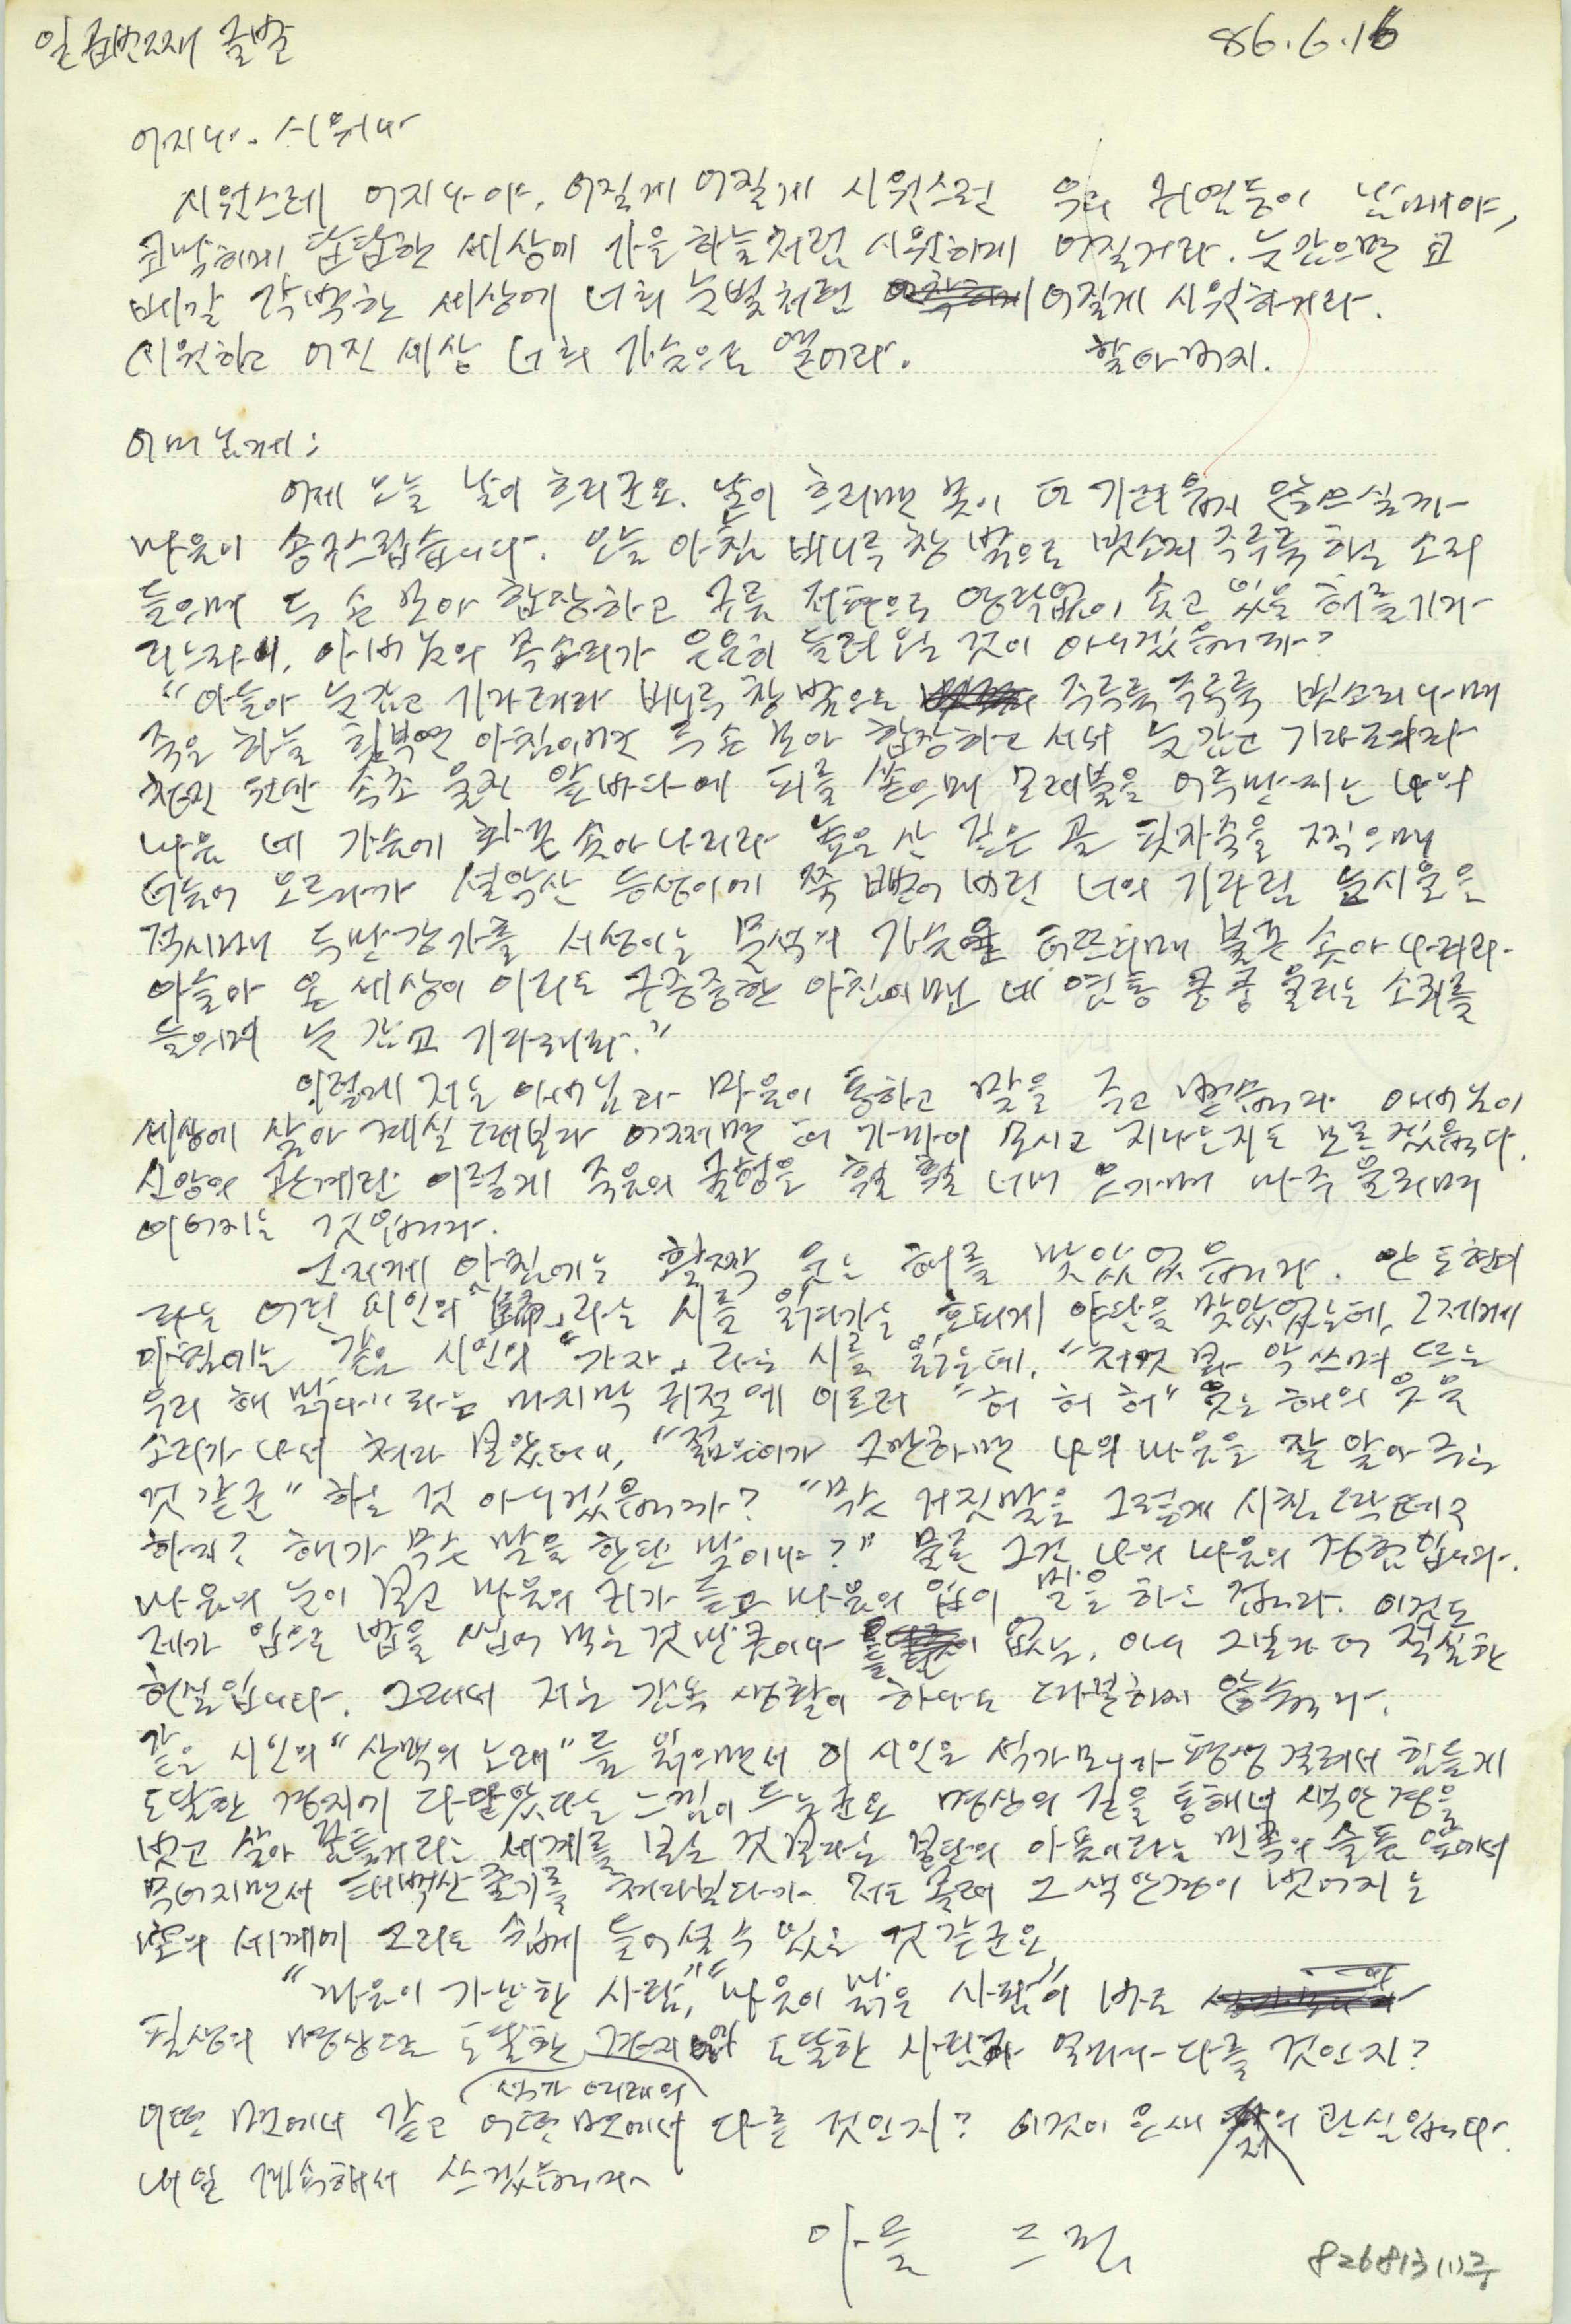 일곱번째 글발 86.6.16
어지나. 시원아
시원스레 어지나야, 어질게 어질게 시원스런 우리 귀염둥이 남매야,
답답한 세상에 가을 하늘처럼 시원하게 어질거라. 눈 감으면 코
베갈 각박한 세상에 너희 눈빛처럼 어질게 시원하거라.
시원하고 어진 세상 너희 가슴으로 열어라. 할아버지.
어머님께:
어제 오늘 날이 흐리군요. 날이 흐리면 몸이 더 기러우실까
마음이 송구스럽습니다. 오늘 아침 비닐루 창 밖으로 빗소리 주루룩 하는 소리
들으며 두 손 모아 합장하고 구름 저편으로 영락없이 솟고 있을 해를 기다
리느라니, 아버님의 목소리가 은은히 들려오는 것이 아니겠습니까?
"아들아 눈감고 기다려라 비닐루 창 밖으로 주루룩 주루룩 빗소리 나며
죽은 하늘 희부연 아침이면 두 손 모아 합장하고 서서 눈감고 기다려라
원산 속초 울진 앞바다에 피를 쏟으며 모래불을 어루만지는 나의
마음 네 가슴에 화끈 솟아나리라 높은 산 깊은 골 핏자죽을 찍으며
더듬어 오르다가 설악산 등성이에 쭉 뻗어 버린 너의 기다림 눈시울을
적시며 두만강가를 서성이는 가슴을 터뜨리며 불끈 솟아나리라
아들아 온 세상이 이리도 구중중한 아침이면 네 염통 쿵쿵 울리는 소리를
들으며 눈 감고 기다려라."
이렇게 저는 아버님과 마음이 통하고 말을 주고 받습니다. 아버님이
세상에 살아 계실 때보다 어쩌면 더 가까이 모시고 지나는지도 모르겠습니다.
신앙의 관계란 이렇게 죽음의 골짜기를 훌훌 넘어 오가며 마주 울리며
이어지는 것입니다.
그저께 아침에는 활짝 웃는 해를 맞았었습니다. 안도현이
라는 어린 시인의 라는 시를 읽다가는 호되게 야단을 맞았었는데, 그저께
아침에는 같은 시인의 "가자" 라는 시를 읽는데, "저것 봐 악쓰며 뜨는
우리 해 붉다" 라는 마지막 귀절에 이르러 "허 허 허" 웃는 해의 웃음
소리가 나서 쳐다 보았더니, "젊은이가 그만하면 나의 마음을 잘 알아 주는
것 같군" 하는 것 아니겠습니까? "무슨 거짓말을 그렇게 시침 딱 떼고
하지? 해가 무슨 말을 한단 말이냐?" 물론 그건 나의 마음의 경험입니다.
마음의 눈이 보고 마음의 귀가 듣고 마음의 입이 말을 하는 겁니다. 이것도
제가 입으로 밥을 씹어 먹는 것만큼이나 틀림이 없는, 아니 그보다 더 절실한
현실입니다. 그래서 저는 감옥 생활이 하나도 따분하지 않습니다.
같은 시인의 "산맥의 노래"를 읽으면서 이 시인은 석가모니가 평생 걸려서 힘들게
도달한 경지에 다달았다는 느낌이 드는군요 명상의 길을 통해서 색안경을
벗고 살아 꿈틀거리는 세계를 보는 것보다는 분단의 아픔이라는 민족의 슬픔 앞에서
무너지면서 태백산 줄기를 쳐다보다가 저도 몰래 그 색안경이 벗어지는
세계에 그리도 쉽게 들어설 수 있는 것 같군요
"마음이 가난한 사람," "마음이 맑은 사람"이 바로
필생의 명상으로 도달한 석가여래의 경지와 도달한 사람과 얼마나 다를 것인지?
어떤 면에서 같고 어떤 면에서 다를 것인지? 이것이 요새 저의 관심입니다.
내일 계속해서 쓰겠습니다
아들 드림
826813 (1)주